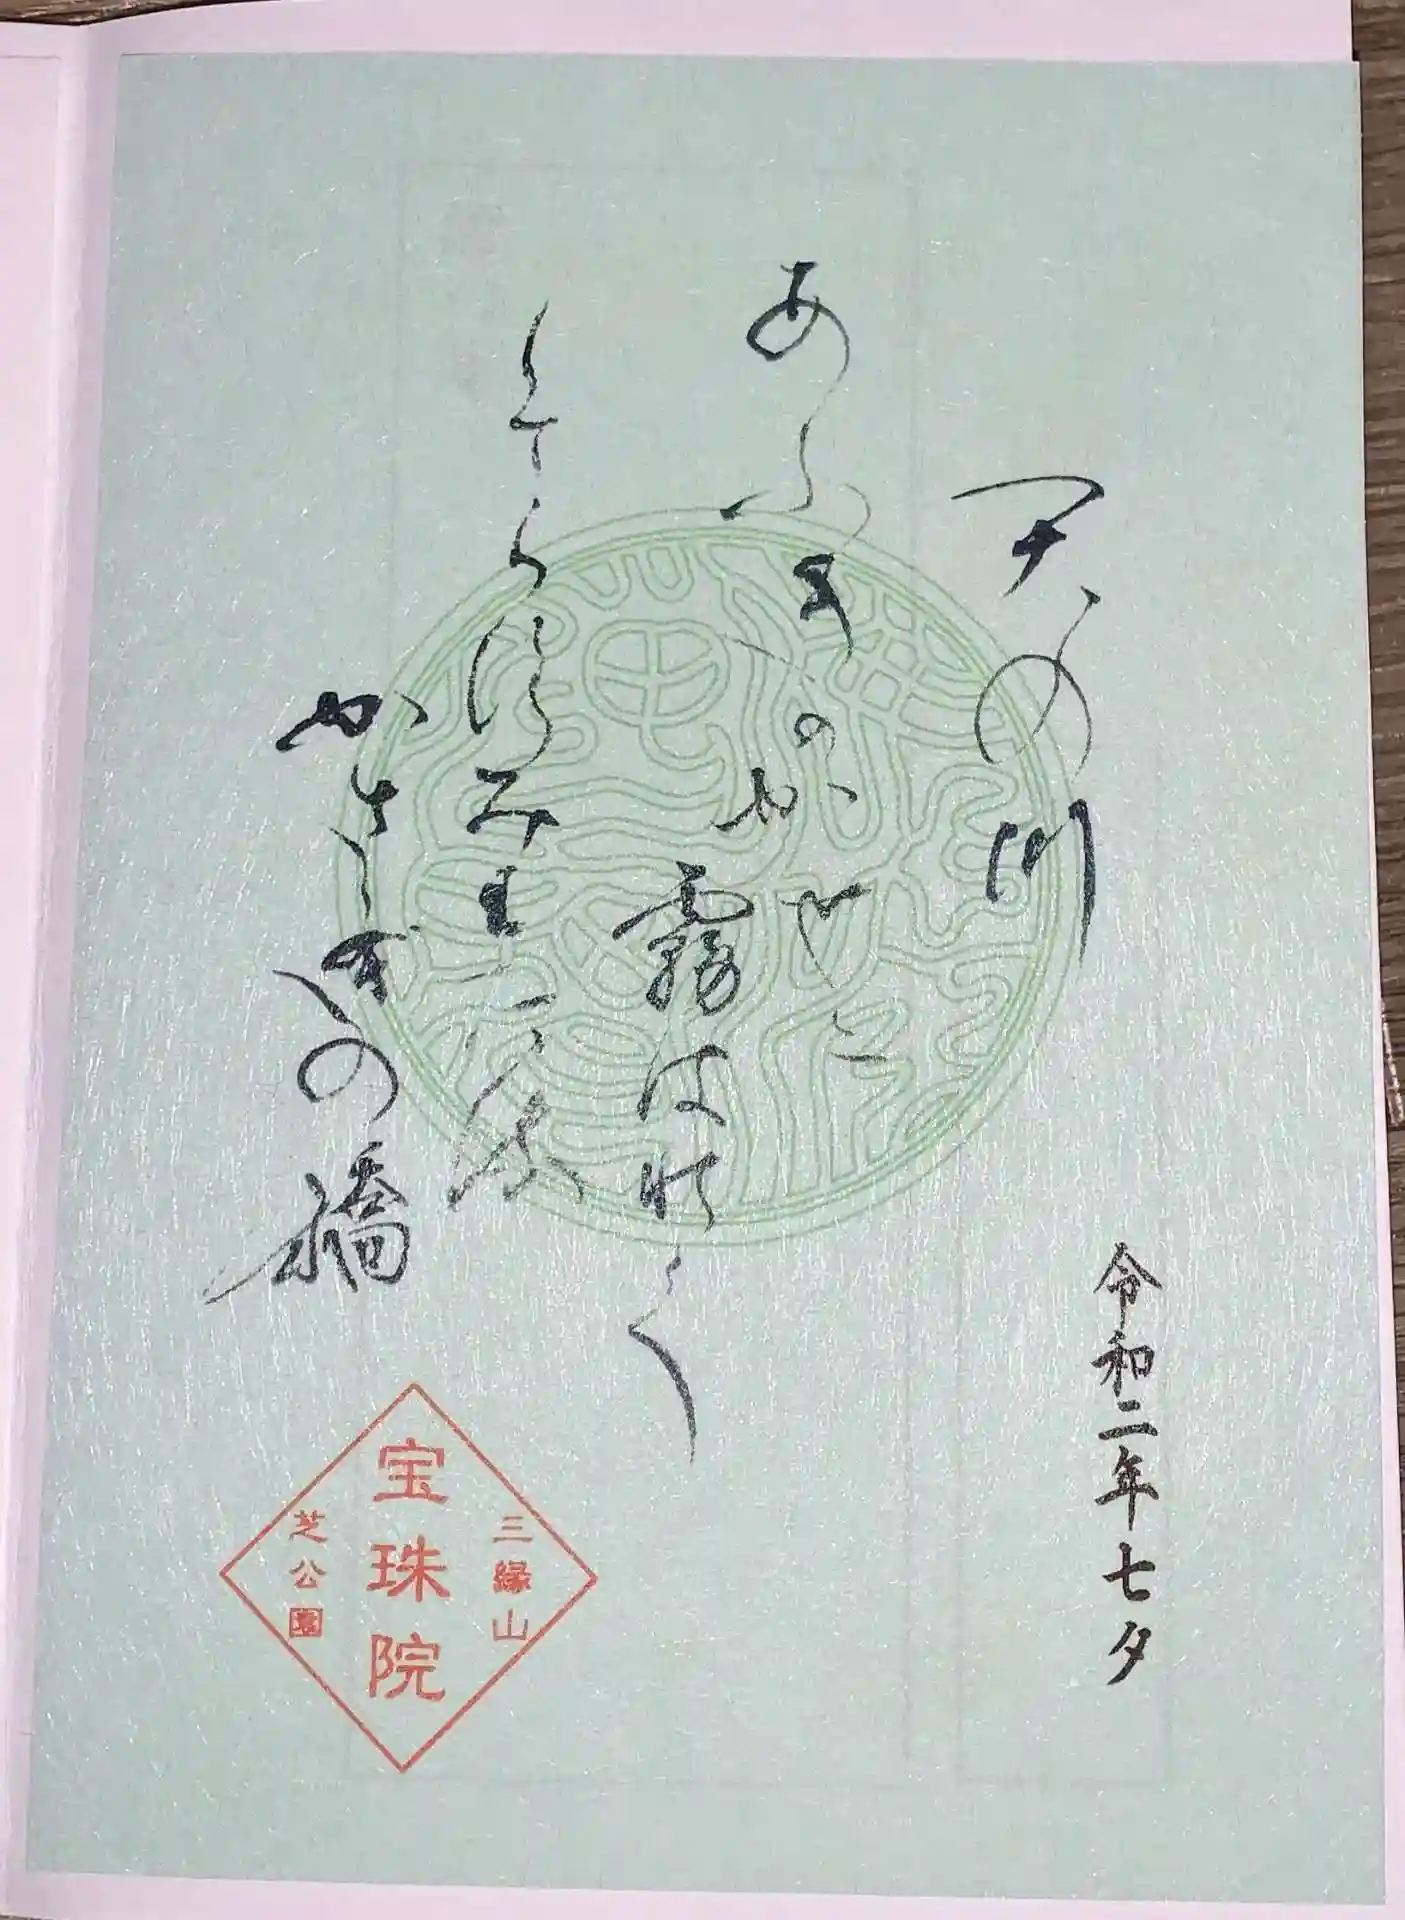 令和二年七夕
天の川
あふきのかせに
霧はれて
そらすみわたる
かさゝきの橋
三縁山
宝珠院
芝公園